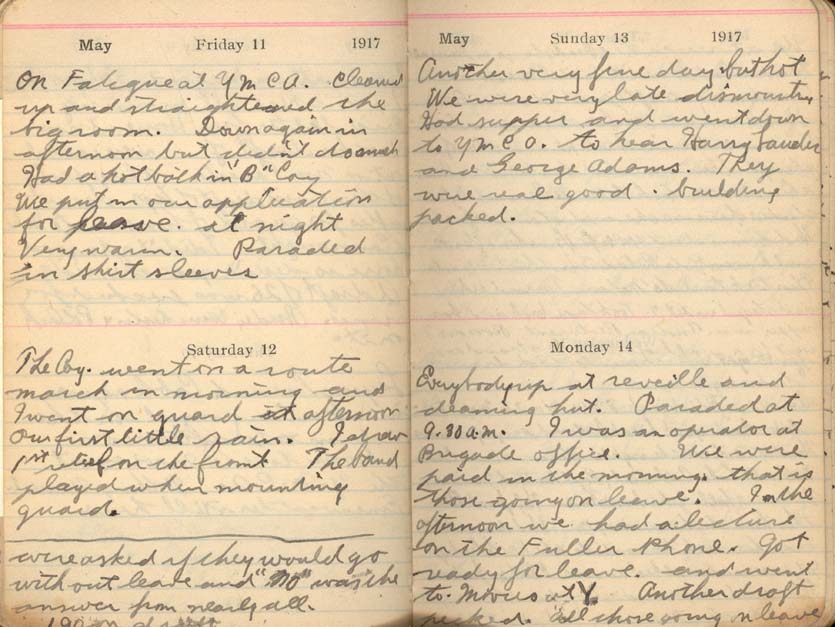 May Friday 11 1917
On Fatigue at YMCA. Cleaned
up and straightened the
big room. Down again in
afternoon but didn't do much
Had a hot bath in "B" Coy
We put in our application
for leave. at night
Very warm. Paraded
in shirt sleeves
Saturday 12
The Coy. went on a route
march in morning and
I went on guard at afternoon
Our first little rain. I draw
1st relief on the front The band
played when mounting
guard.
were asked if they would go
without leave and "No" was the
answer from nearly all.
190 on draft
May Sunday 13 1917
Another very fine day but hot
We were very late dismounting
Had supper and went down
to YMCA. to hear Harry Lauder
and George Adams. They
were real good. building
packed.
Monday 14
Everybody up at reveille and
cleaning hut. Paraded at
9.30 a.m. I was an operator at
Brigade office. We were
paid in the morning. that is
those going on leave. In the
afternoon we had a lecture
on the Fuller Phone. Got
ready for leave. and went
to movies at Y. Another draft
picked. all those going on leave